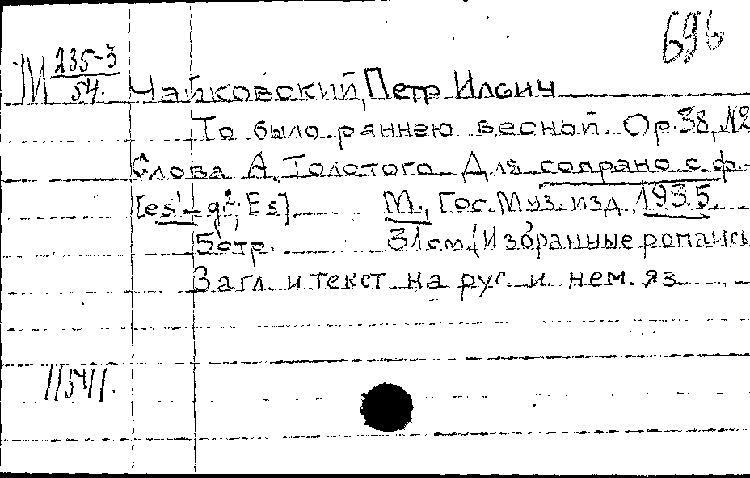 696
М 235-3/54. Чайковский, Петр Ильич
То было раннею весной. Op. 38, №2
Слова А. Толстого. Для сопрано с ф.
[es¹ – g²; Es] М., Гос. Муз. изд. 1935.
5 стр. 31 см. (Избранные романсы
Загл. и текст на рус. и нем. яз